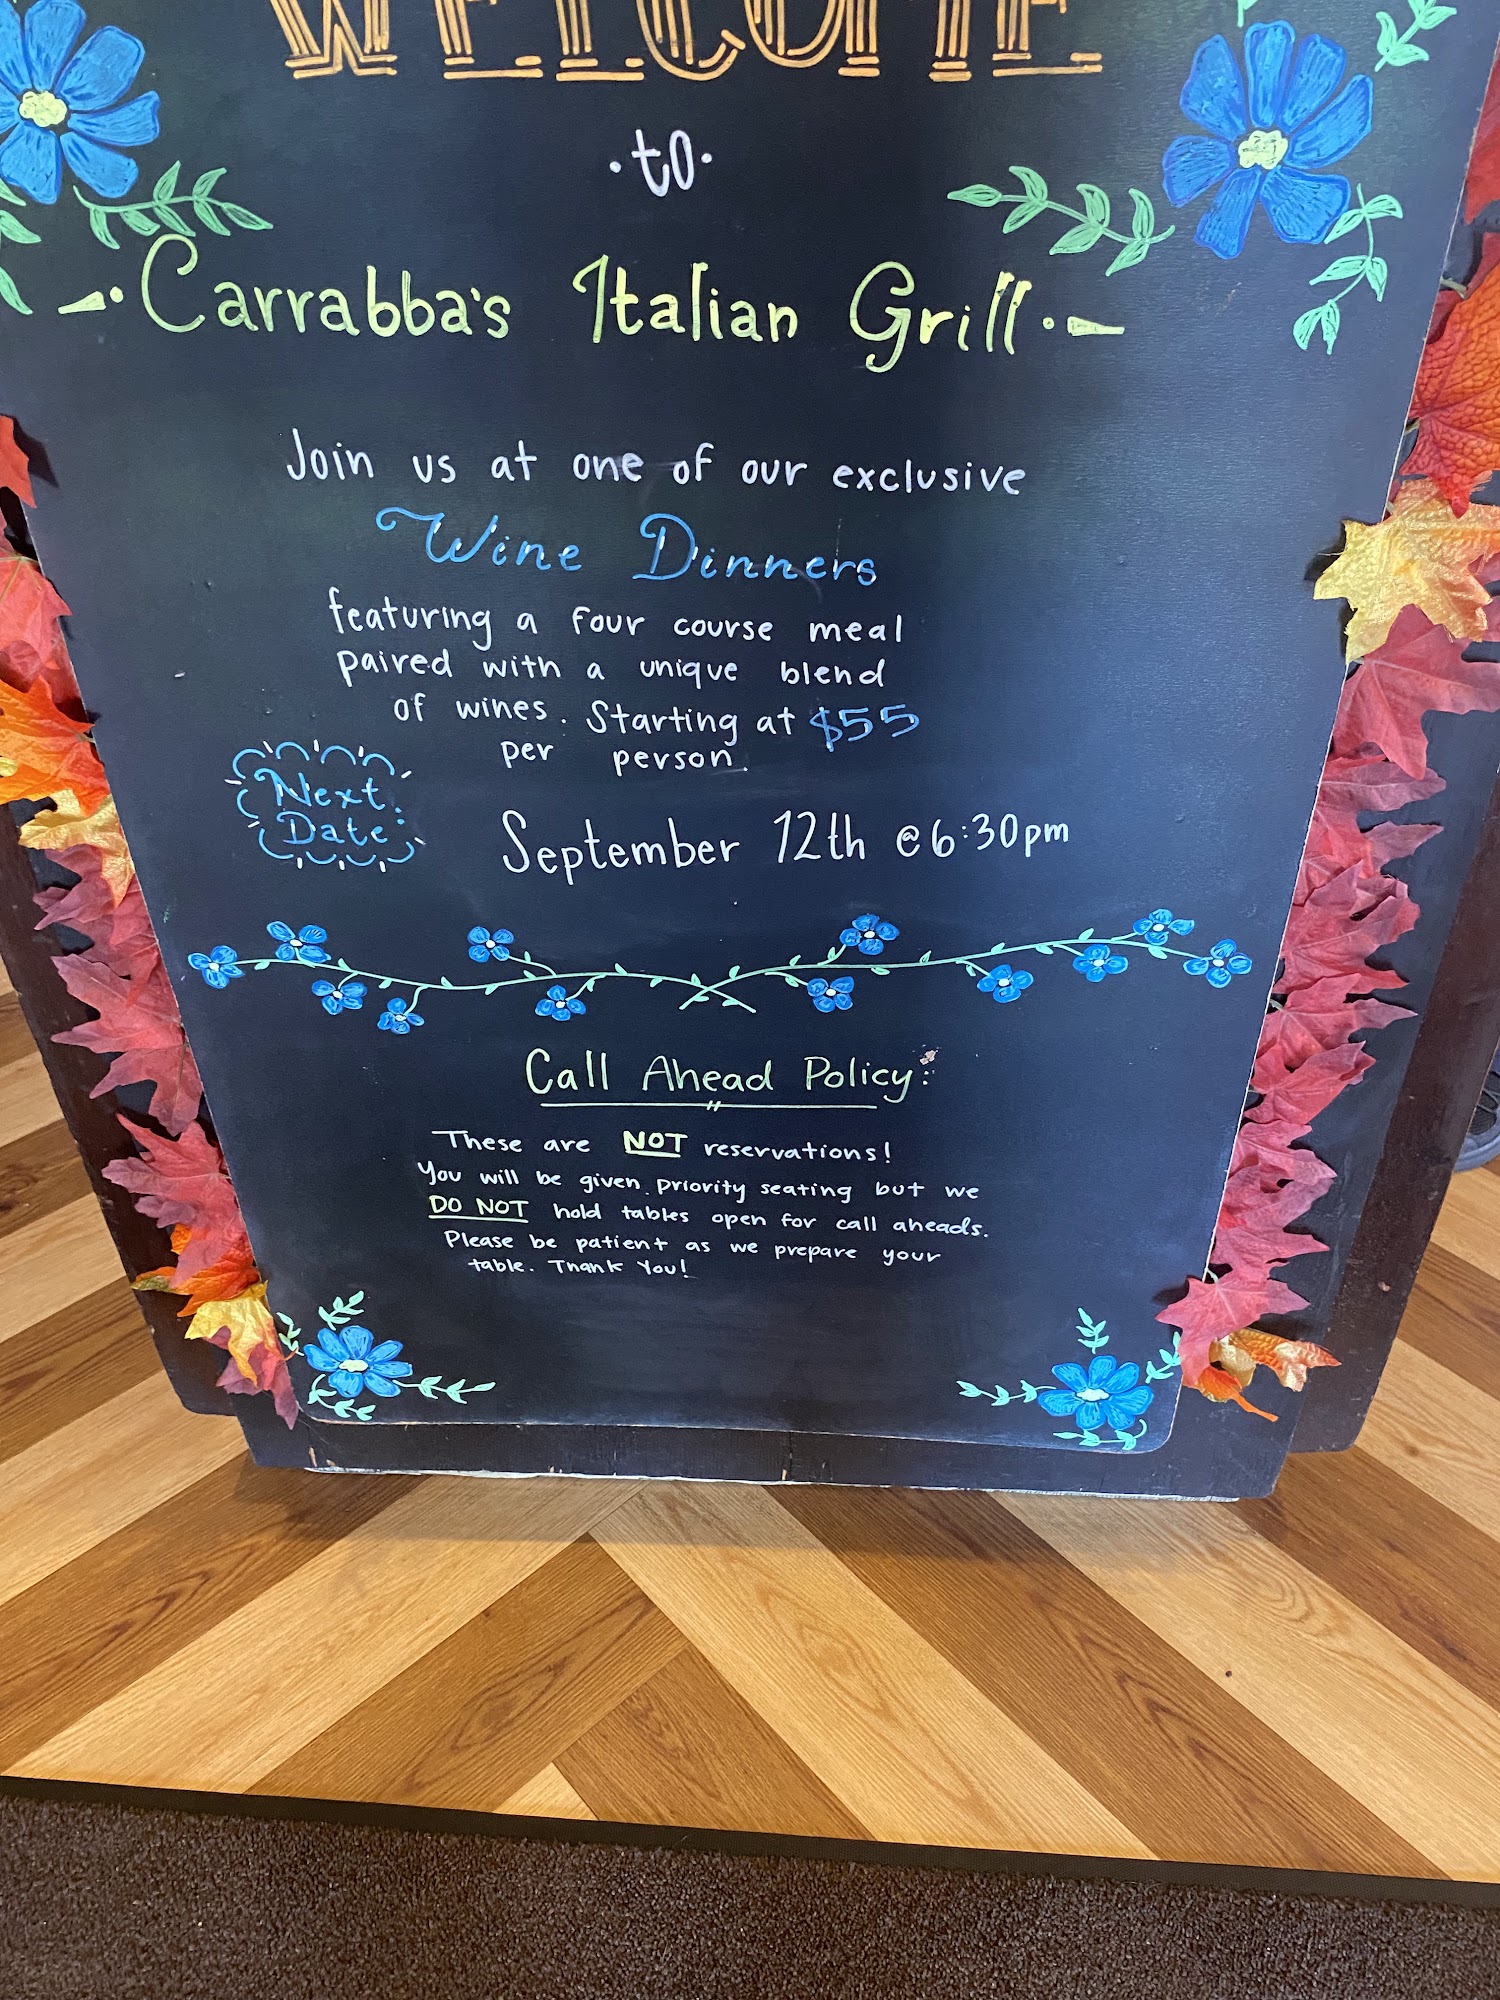 WELCOME
·to·
Carrabba's Italian Grill
Join us at one of our exclusive
Wine Dinners
featuring a four course meal
paired with a unique blend
of wines. Starting at $55
per person.
Next
Date:
September 12th @ 6:30pm
Call Ahead Policy:
These are NOT reservations!
You will be given priority seating but we
DO NOT hold tables open for call aheads.
Please be patient as we prepare your
table. Thank You!